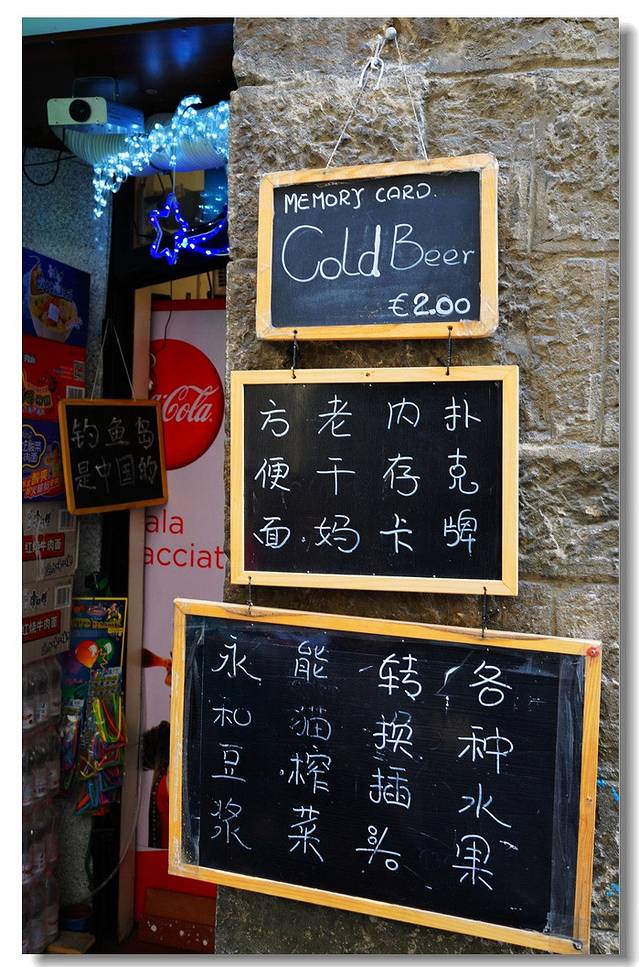 MEMORY CARD.
Cold Beer
€2.00
方便面
老干妈
内存卡
扑克牌
永和豆浆
熊猫榨菜
转换插头
各种水果
钓鱼岛
是中国的
Cola
ala
acciat
红烧牛肉面
红烧牛肉面